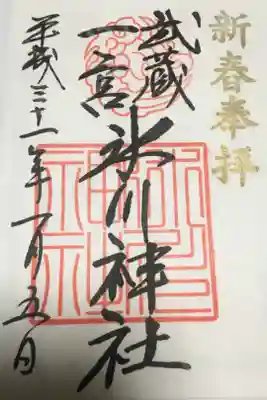 新春奉拝
武蔵
一宮
氷川神社
平成三十一年一月五日